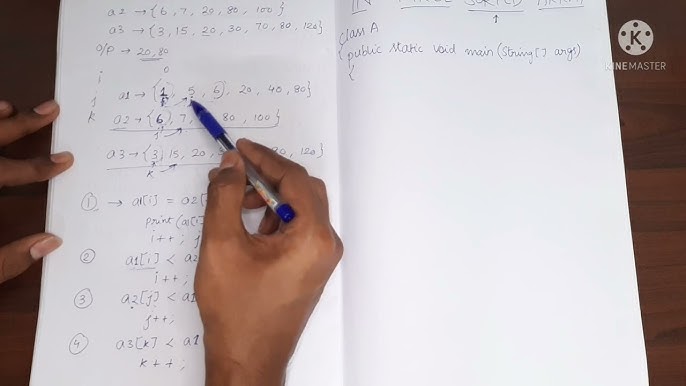 a2 → {6, 7, 20, 80, 100}
a3 → {3, 15, 20, 30, 70, 80, 120}
O/P → 20, 80
i
j
k
0
a1 → {1, 5, 6, 20, 40, 80}
a2 → {6, 7, 80, 100}
j
a3 → {3, 15, 20, 120}
k
① → a1[i] = a2[
print(a1[i]
i++; j
② a1[i] < a2
i++;
③ a2[j] < a1
j++;
④ a3[k] < a1
k++;
IN SORTED
class A
{ public static void main (String[] args)
{
KINEMASTER